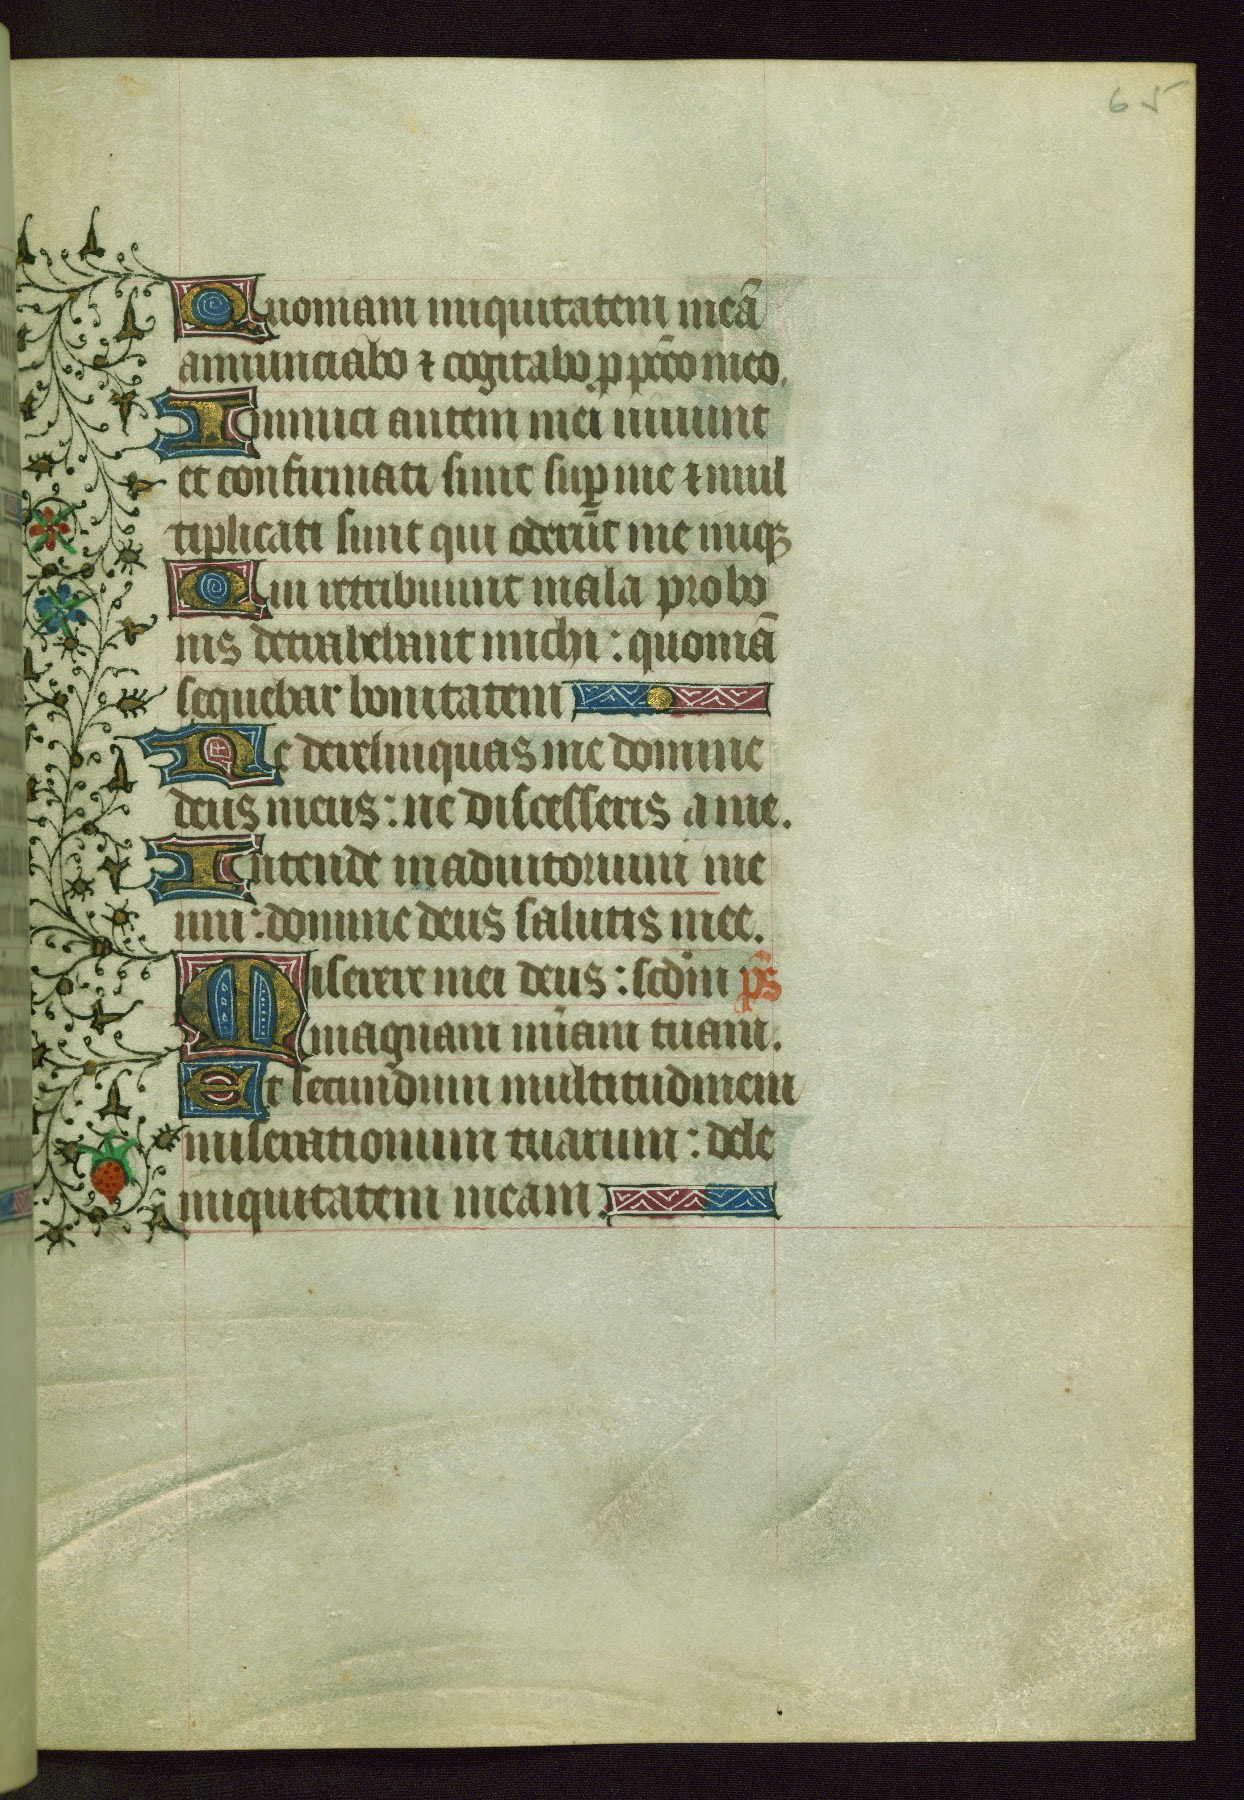 65
Quoniam iniquitatem meā
annunciabo ⁊ cogitabo p̱ pctō meo.
Inimici autem mei uiuunt
et confirmati sunt sup̱ me ⁊ mul
tiplicati sunt qui oderūt me iniqꝫ
Qui retribuunt mala pro bo
nis detrahebant michi : quoniā
sequebar bonitatem
Ne derelinquas me domine
deus meus : ne discesseris a me.
Intende in adiutorium me
um : domine deus salutis mee.
Miserere mei deus : scdm̄ p̄s
magnam mīam tuam.
Et secundum multitudinem
miserationum tuarum : dele
iniquitatem meam.